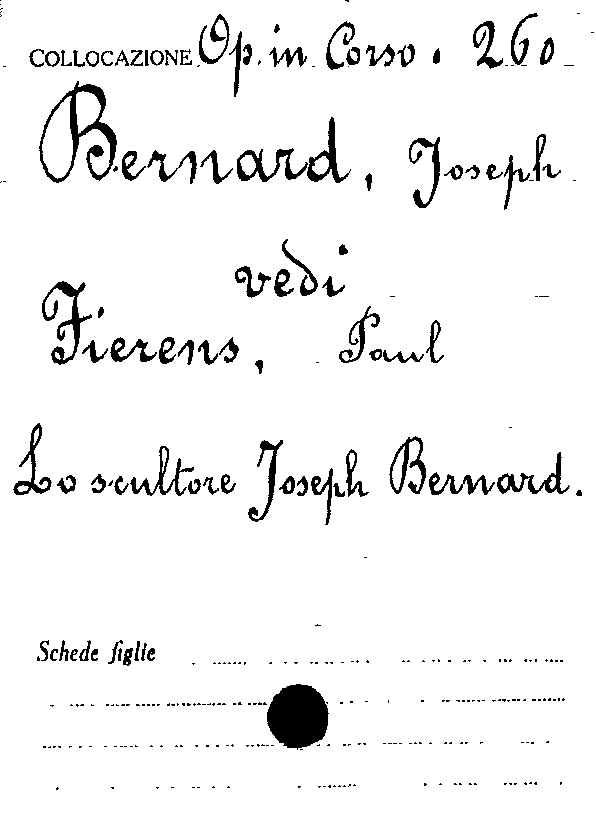 COLLOCAZIONE Op. in Corso. 260
Bernard, Joseph
vedi
Fierens, Paul
Lo scultore Joseph Bernard.
Schede figlie